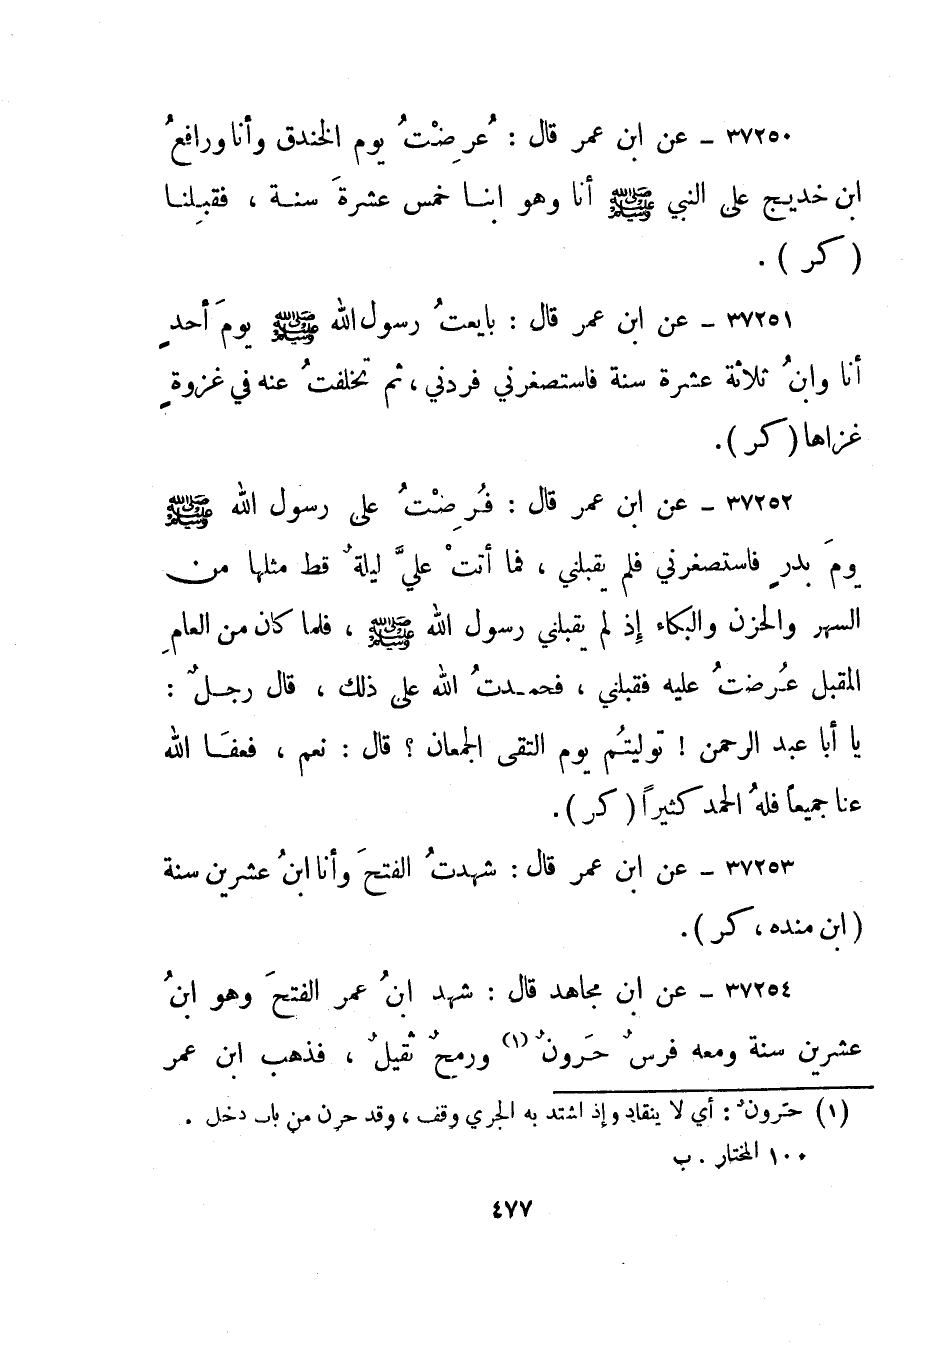 ٣٧٢٥٠ ـ عن ابن عمر قال : عُرِضْتُ يوم الخندق وأنا ورافعُ
ابن خديج على النبي ﷺ أنا وهو ابنا خمس عشرةَ سنة ، فقبِلنا
( كر ) .
٣٧٢٥١ ـ عن ابن عمر قال : بايعتُ رسول الله ﷺ يومَ أحدٍ
أنا وابنُ ثلاثة عشرة سنة فاستصغرني فردني ، ثم تخلفتُ عنه في غزوةٍ
غزاها ( كر ) .
٣٧٢٥٢ ـ عن ابن عمر قال : فُرِضْتُ على رسول الله ﷺ
يومَ بدرٍ فاستصغرني فلم يقبلني ، فما أتتْ عليَّ ليلةٌ قط مثلها من
السهر والحزن والبكاء إذ لم يقبلني رسول الله ﷺ ، فلما كان من العامِ
المقبل عُرضتُ عليه فقبلني ، فحمدتُ الله على ذلك ، قال رجلٌ :
يا أبا عبد الرحمن ! توليتُم يوم التقى الجمعان ؟ قال : نعم ، فعفَا الله
عنا جميعاً فلهُ الحمد كثيراً ( كر ) .
٣٧٢٥٣ ـ عن ابن عمر قال : شهدتُ الفتحَ وأنا ابنُ عشرين سنة
( ابن منده ، كر ) .
٣٧٢٥٤ ـ عن ابن مجاهد قال : شهد ابنُ عمر الفتحَ وهو ابنُ
عشرين سنة ومعه فرسٌ حَرونٌ (١) ورمحٌ ثقيلٌ ، فذهب ابن عمر
(١) حَرونٌ : أي لا ينقاد وإذ اشتد به الجري وقف ، وقد حرن من باب دخل .
١٠٠ المختار . ب
٤٧٧